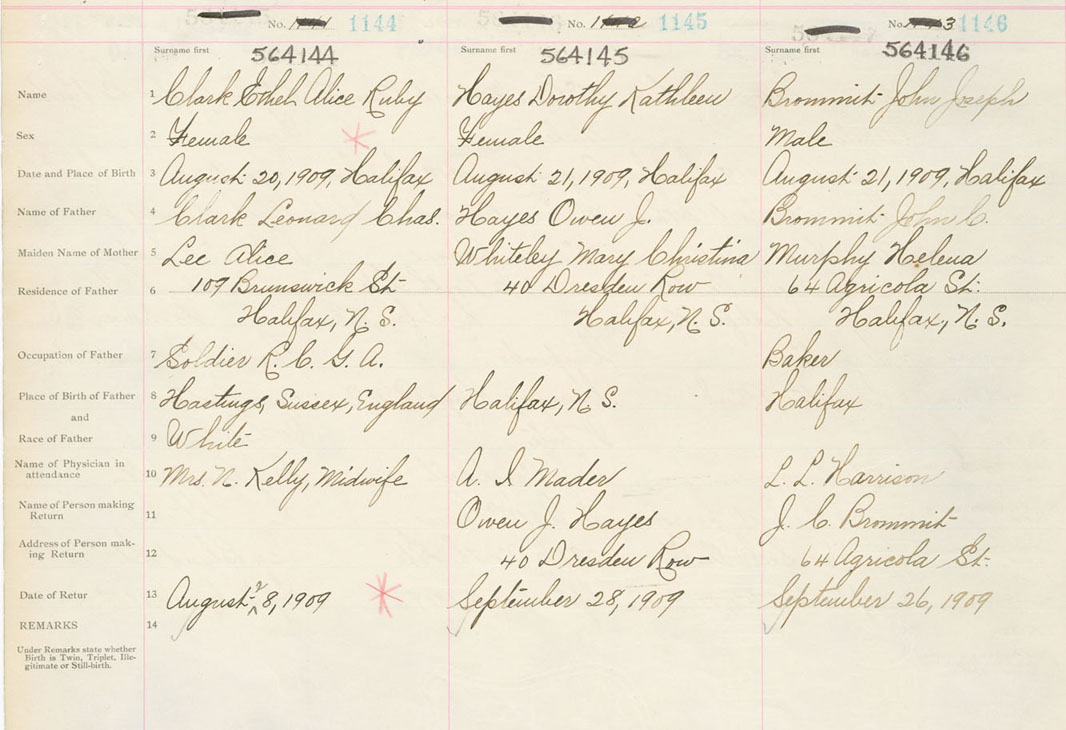 No. 1144 No. 1145 No. 1146
Surname first Surname first Surname first
564144 564145 564146
Name 1 Clark Ethel Alice Ruby Hayes Dorothy Kathleen Brommit John Joseph
Sex 2 Female Female Male
Date and Place of Birth 3 August 20, 1909, Halifax August 21, 1909, Halifax August 21, 1909, Halifax
Name of Father 4 Clark Leonard Chas. Hayes Owen J. Brommit John C.
Maiden Name of Mother 5 Lee Alice Whiteley Mary Christina Murphy Helena
Residence of Father 6 109 Brunswick St. 40 Dresden Row 64 Agricola St.
Halifax, N. S. Halifax, N. S. Halifax, N. S.
Occupation of Father 7 Soldier R. C. G. A. Baker
Place of Birth of Father 8 Hastings, Sussex, England Halifax, N S. Halifax
and
Race of Father 9 White
Name of Physician in
attendance 10 Mrs. N. Kelly, Midwife A. I Mader L. L. Harrison
Name of Person making
Return 11 Owen J. Hayes J. C. Brommit
Address of Person mak-
ing Return 12 40 Dresden Row 64 Agricola St.
Date of Retur 13 August 28, 1909 September 28, 1909 September 26, 1909
REMARKS 14
Under Remarks state whether
Birth is Twin, Triplet, Ille-
gitimate or Still-birth.